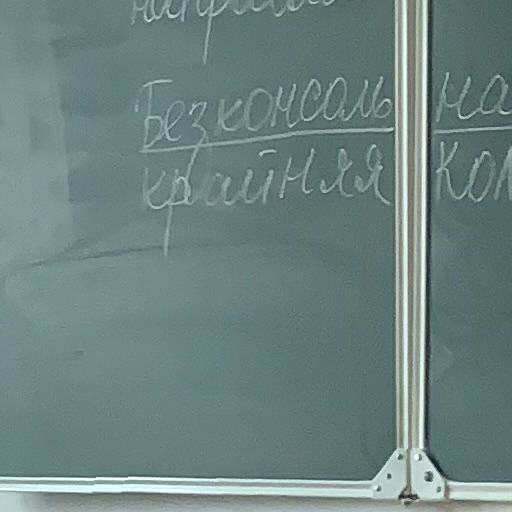 Безконсоль на
крайняя кол